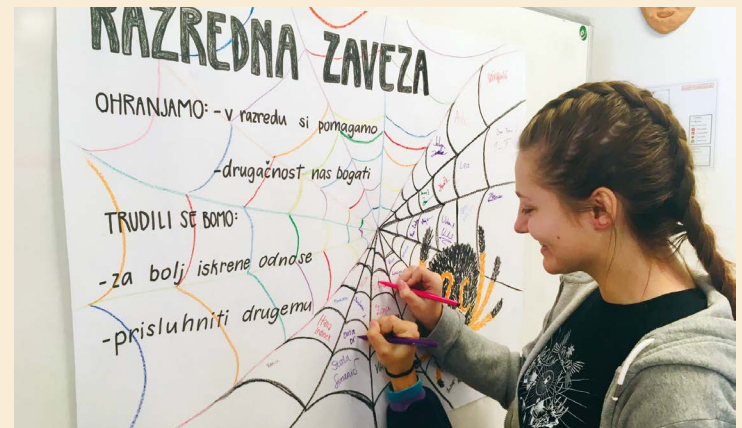 RAZREDNA ZAVEZA
OHRANJAMO: - v razredu si pomagamo
-drugačnost nas bogati
TRUDILI SE BOMO:
-za bolj iskrene odnose
-prisluhniti drugemu